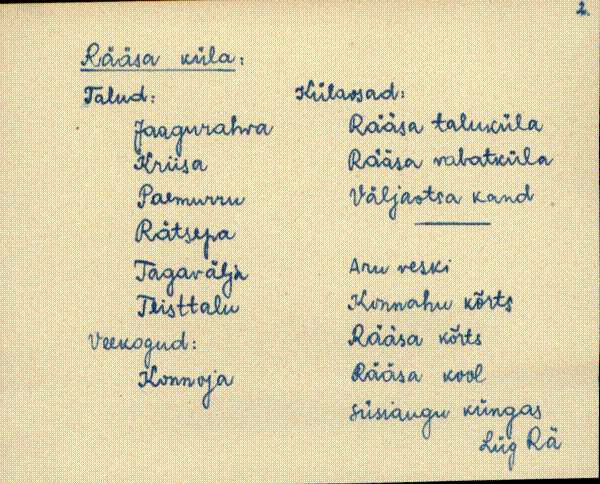 2.
Rääsa küla:
Talud:
Jaagurahva
Kriisa
Paemurru
Rätsepa
Tagavälja
Teisttalu
Veekogud:
Konnoja
Külaosad:
Rääsa taluküla
Rääsa vabatküla
Väljaotsa kand
Aru veski
Konnahu kõrts
Rääsa kõrts
Rääsa kool
Süsiaugu küngas
Lüg Rä